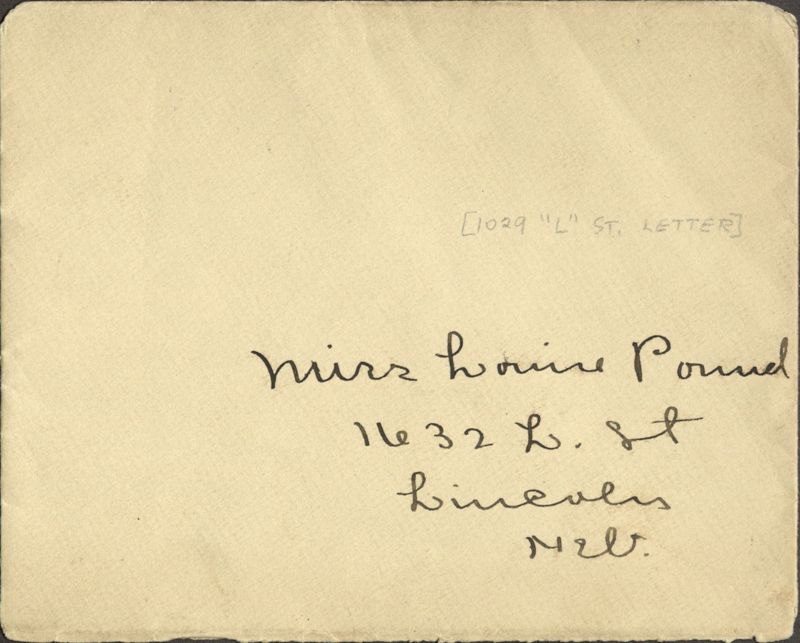 [1029 "L" ST. LETTER]
Miss Louise Pound
1632 L. St
Lincoln
Neb.